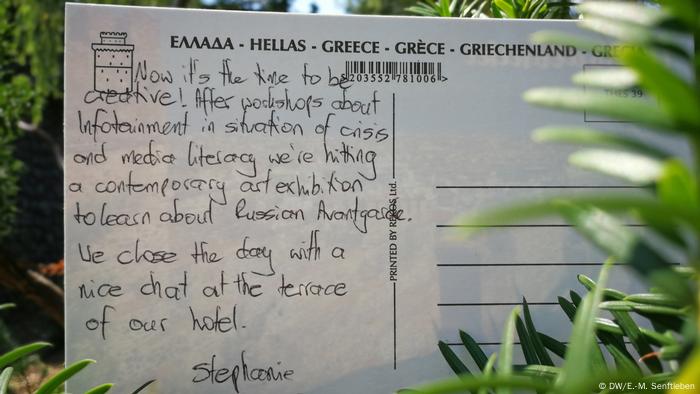 ΕΛΛΑΔΑ - HELLAS - GREECE - GRÈCE - GRIECHENLAND - GRECIA
5203552781006
THES 39
Now it's the time to be
creative! After workshops about
Infotainment in situation of crisis
and media literacy we're hitting
a contemporary art exhibition
to learn about Russian Avantgarde.
We close the day with a
nice chat at the terrace
of our hotel.
Stephanie
PRINTED BY Ltd.
© DW/E.-M. Senftleben